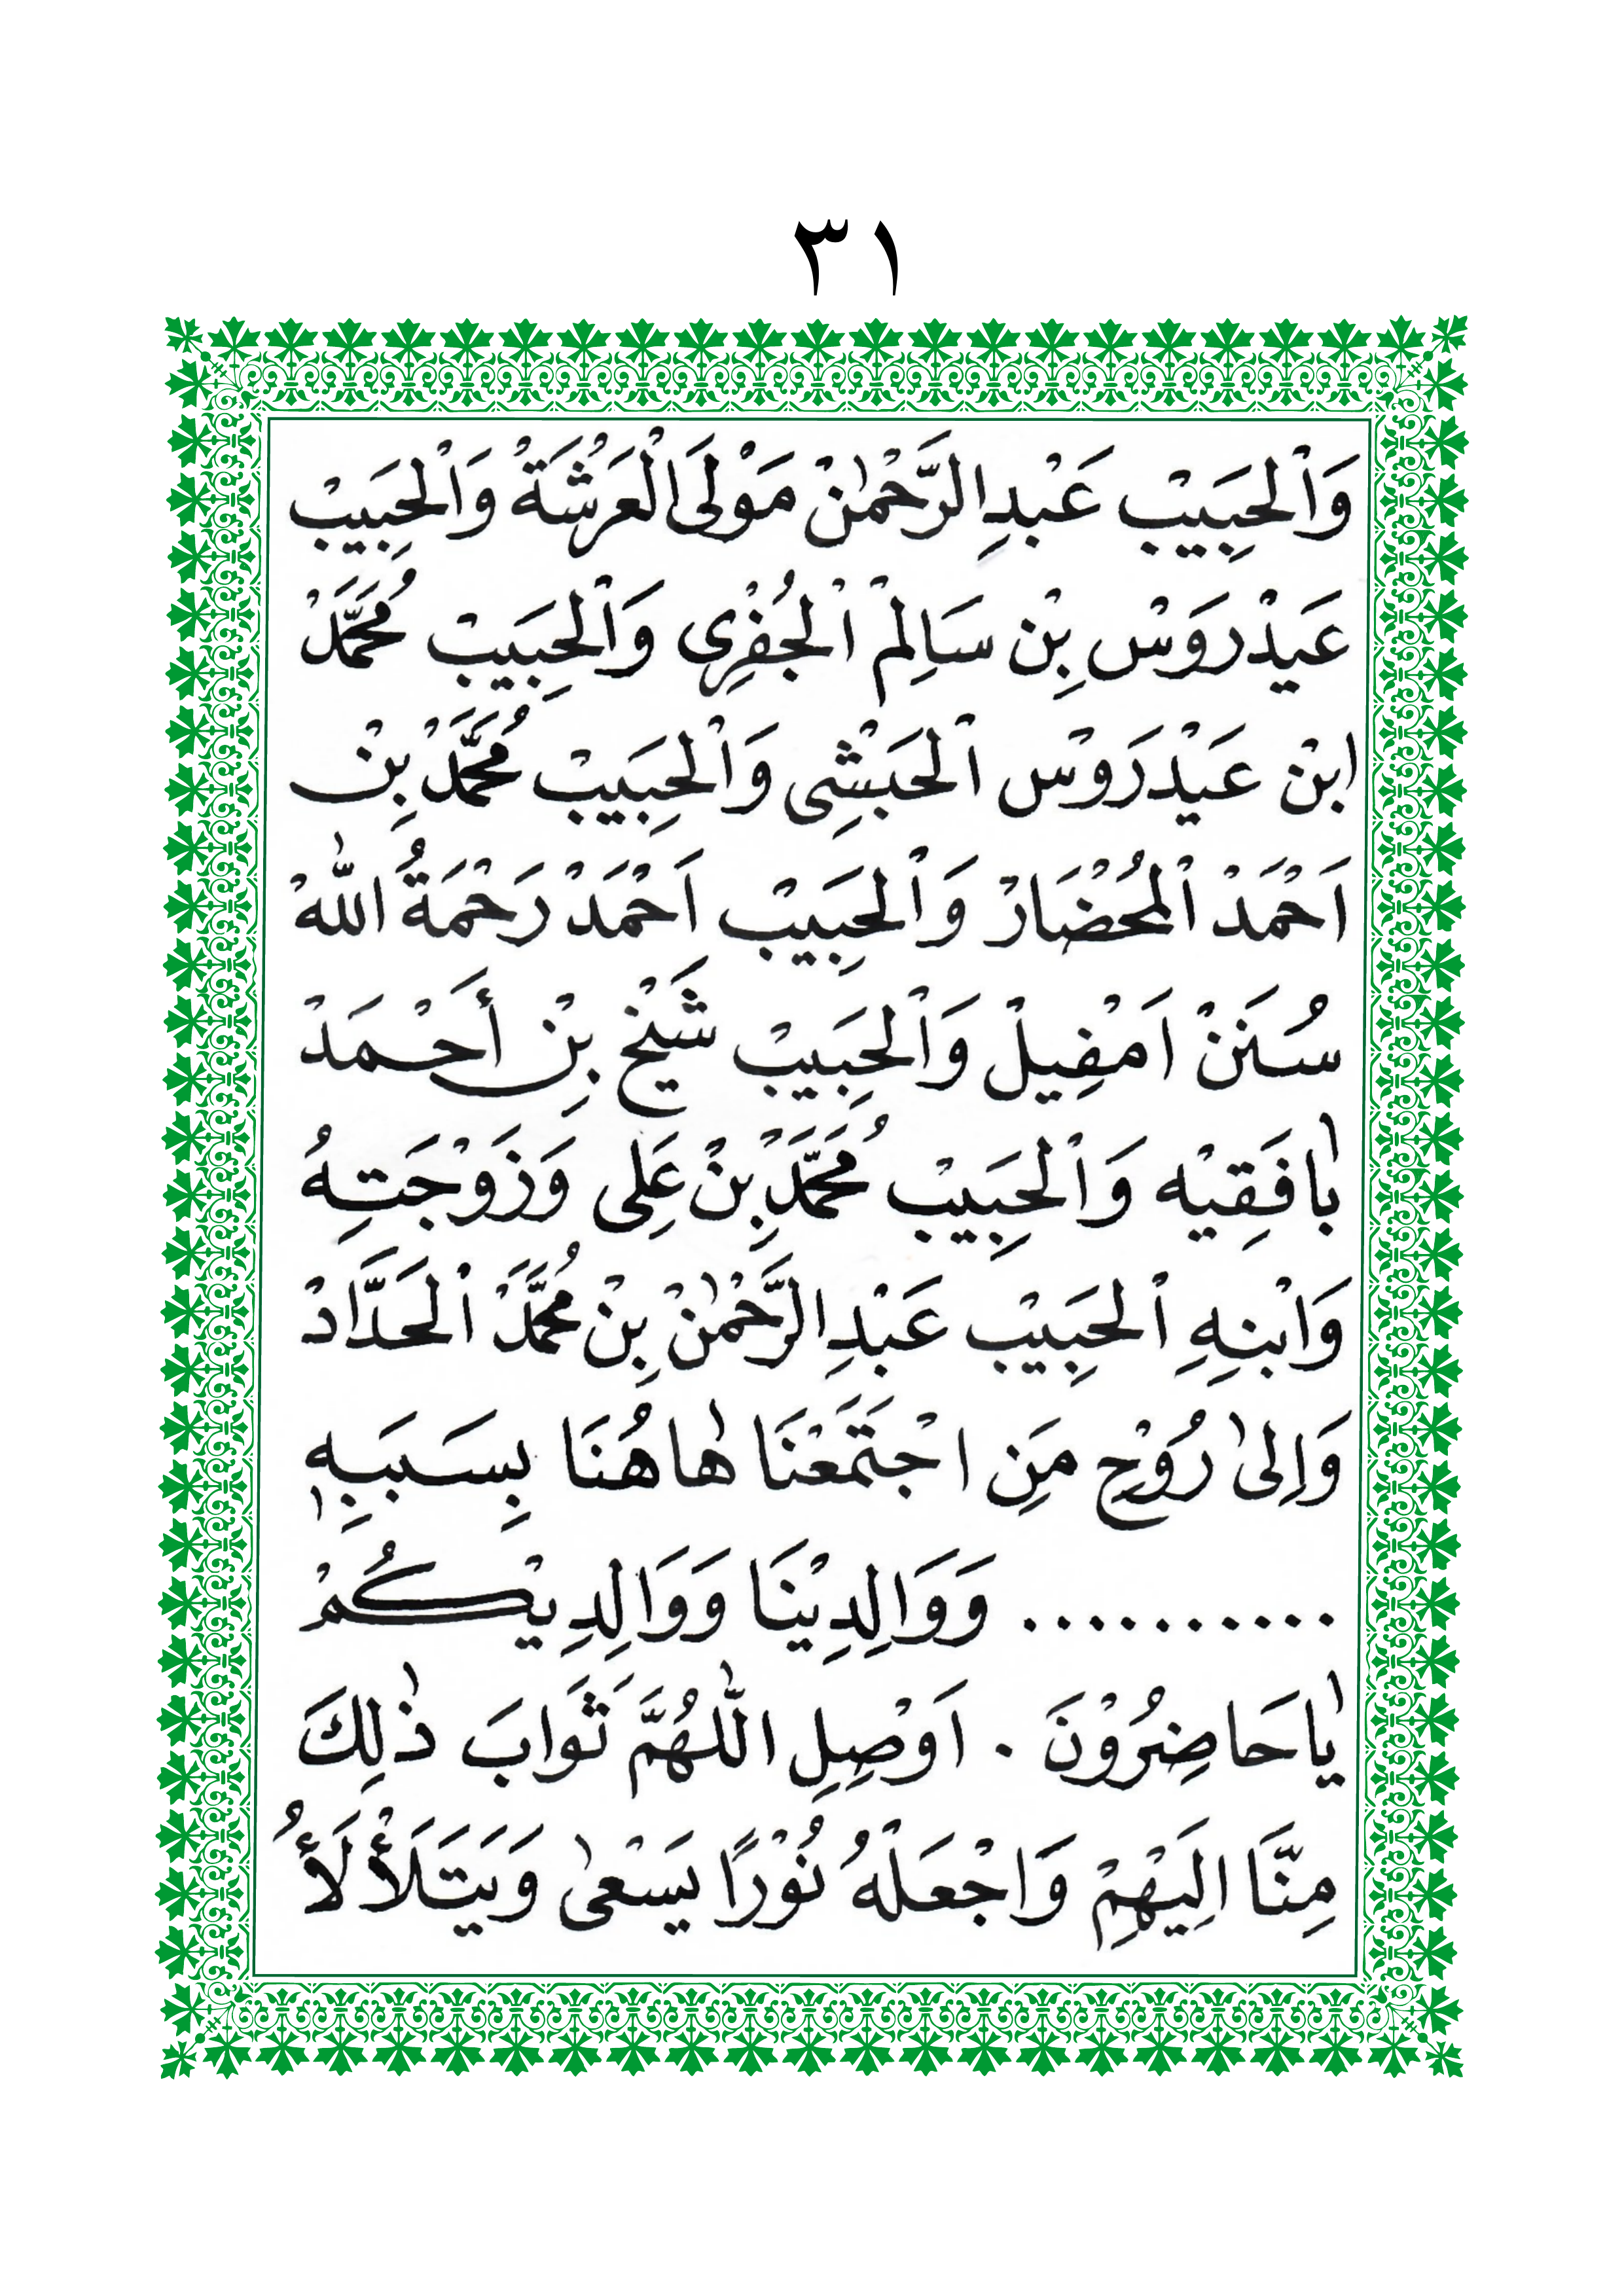 ٣١
وَاْلحَبِيَبْ عَبْدِالرَّحْمٰنْ مَوْلَىالْعَرْشَةْ وَاْلحَبِيَبْ
عَيْدْرَوَسْ بِنْ سَالِمْ اْلجُفْرِى وَاْلحَبِيَبْ مُحَمَّدْ
ابنْ عَيْدَرَوْس اْلحَبَشِْى وَاْلحَبِيَبْ مُحَمَّدْ بِنْ
اَحْمَدْ اْلمُحْضَارْ وَاْلحَبِيَبْ اَحْمَدْ رَحْمَةُ اللّٰهْ
سُنَنْ اَمْفِيلْ وَاْلحَبِيَبْ شَيْخْ بِنْ أَحْمَدْ
بٰافَقِيْه وَاْلحَبِيَبْ مُحَمَّدَْ بِنْ عَلِى وَزَوْجَتِهُ
وَابْنِهِ اْلحَبِيَبْ عَبْدِالرَّحْمٰنْ بِنْ مُحَمَّدْ اْلحَدَّادْ
وَاِلىٰ رُوْحِ مَنِ اجْتَمَعْنَا هٰاهُنَا بِسَبَبِهٖ
.......... وَوَالِدِيْنَا وَوَالِدِيْكُمْ
يٰاحَاضِرُوْنَ . اَوْصِلِ اللّٰهُمَّ ثَوَابَ ذٰلِكَ
مِنَّا اِلَيْهِمْ وَاجْعَلْهُ نُوْرًا يَسْعىٰ وَيَتَلَأْلَأُ